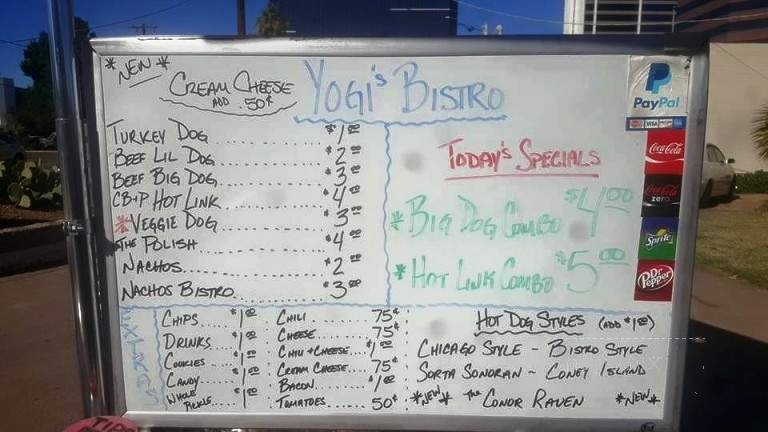 *NEW*
CREAM CHEESE
ADD .50¢
YOGI'S BISTRO
TURKEY DOG.......... $1.00
BEEF LIL DOG.......... $2.00
BEEF BIG DOG.......... $3.00
CB+P HOT LINK.......... $4.00
*VEGGIE DOG.......... $3.00
THE POLISH.......... $4.00
NACHOS.......... $2.00
NACHOS BISTRO.......... $3.00
TODAY'S SPECIALS
*BIG DOG COMBO $4.00
*HOT LINK COMBO $5.00
PayPal
VISA
Coca-Cola
Coca-Cola
zero
Sprite
Dr Pepper
EXTRAS
CHIPS.... $1.00
DRINKS.... $1.00
COOKIES.... $1.00
CANDY.... $1.00
WHOLE PICKLE.... $1.00
CHILI.... 75¢
CHEESE.... 75¢
CHILI+CHEESE.... $1.00
CREAM CHEESE.... 75¢
BACON.... $1.00
TOMATOES.... 50¢
HOT DOG STYLES (ADD $1.00)
CHICAGO STYLE - BISTRO STYLE
SORTA SONORAN - CONEY ISLAND
*NEW* THE CONOR RAVEN *NEW*
TIPS